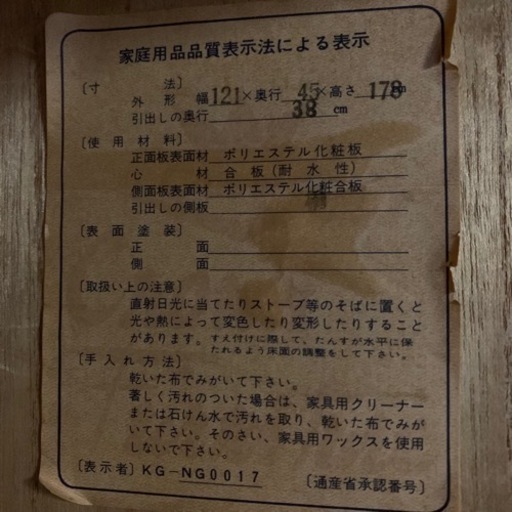 家庭用品品質表示法による表示
〔寸　　　法〕
外　形　幅121×奥行45×高さ178cm
引出しの奥行　38 cm
〔使 用 材 料〕
正面板表面材　ポリエステル化粧板
心　　　材　合　板（耐　水　性）
側面板表面材　ポリエステル化粧合板
引出しの側板
〔表 面 塗 装〕
正　　　面
側　　　面
〔取扱い上の注意〕
直射日光に当てたりストーブ等のそばに置くと
光や熱によって変色したり変形したりすること
があります。すえ付けに際して、たんすが水平に保
たれるよう床面の調整をして下さい。
〔手 入 れ 方 法〕
乾いた布でみがいて下さい。
著しく汚れのついた場合は、家具用クリーナー
または石けん水で汚れを取り、乾いた布でみが
いて下さい。そのさい、家具用ワックスを使用
しないで下さい。
〔表示者〕KG－NG0017　〔通産省承認番号〕